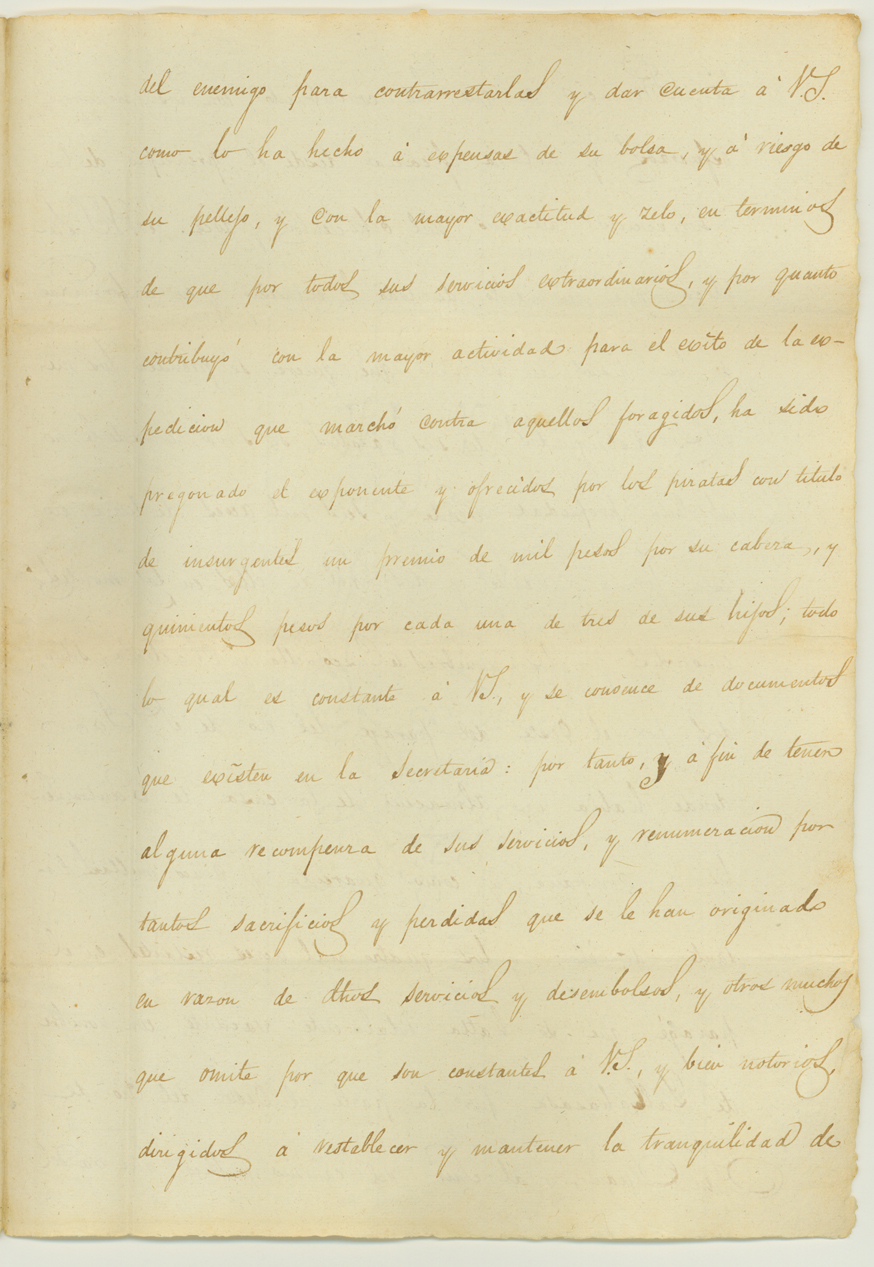 del enemigo para contrarrestarlas y dar cuenta á V.S.
como lo ha hecho á expensas de su bolsa, y á riesgo de
su pellejo, y con la mayor exactitud y zelo, en terminos
de que por todos sus servicios extraordinarios, y por quanto
contribuyó con la mayor actividad para el exîto de la ex-
pedicion que marchó contra aquellos foragidos, ha sido
pregonado el exponente y ofrecidos por los piratas con titulo
de insurgentes un premio de mil pesos por su cabeza, y
quinientos pesos por cada una de tres de sus hijos; todo
lo qual es constante á VS, y se conoce de documentos
que exîsten en la Secretaría: por tanto, y á fin de tener
alguna recompenza de sus servicios, y renumeracion por
tantos sacrificios y perdidas que se le han originado
en razon de dhos servicios y desembolsos, y otros muchos
que omite por que son constantes á V.S., y bien notorios,
dirigidos á restablecer y mantener la tranquilidad de